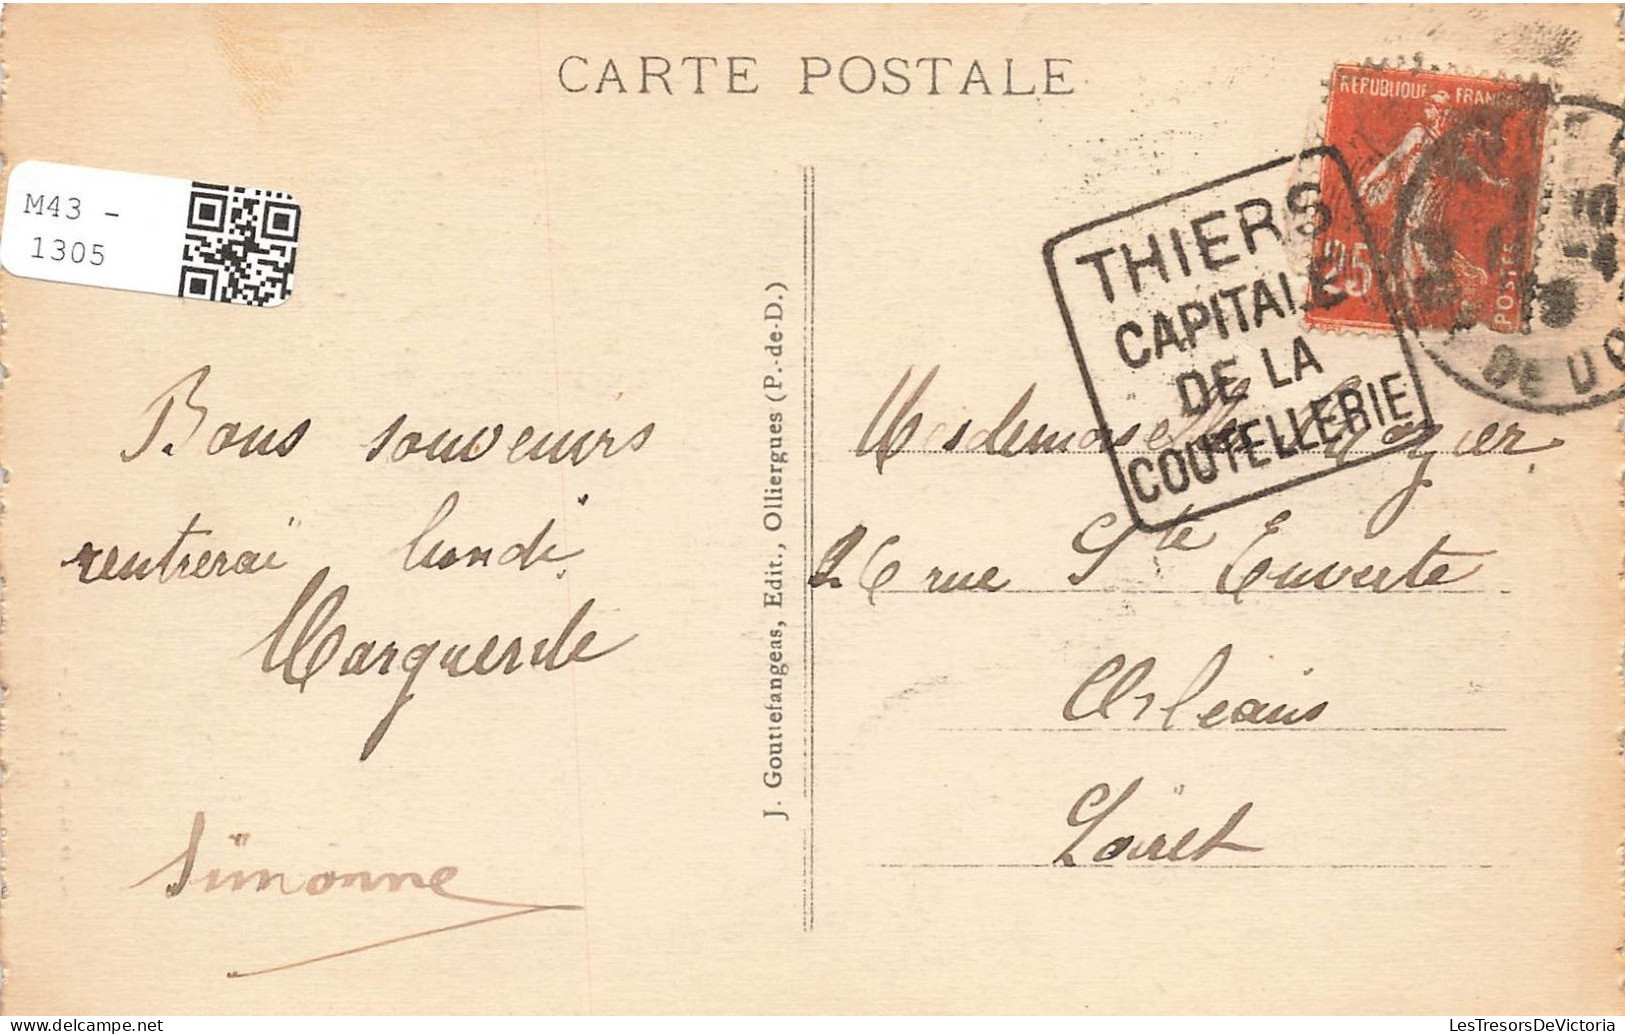 CARTE POSTALE
M43 -
1305
REPUBLIQUE FRANÇAISE
25
POSTES
THIERS
CAPITALE
DE LA
COUTELLERIE
DE DO
Bons souvenirs
rentrerai lundi
Marguerite
Simonne
J. Gouttefangeas, Edit., Olliergues (P.-de-D.)
Mesdemoiselles
26 rue Ste Euverte
Orléans
Loiret
LesTresorsDeVictoria